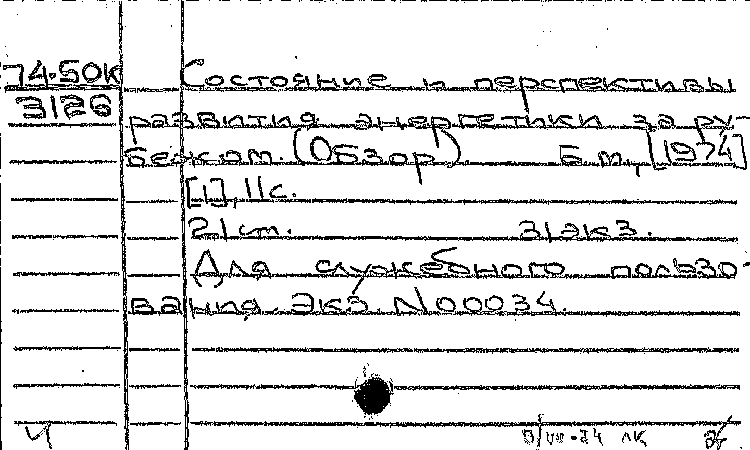 74-50К Состояние и перспективы
3126 развития энергетики за ру-
бежом. (Обзор). Б.м., [1974]
[1], 11 с.
21 см. 3 экз.
Для служебного пользо-
вания. Экз. N 00034.
Ч